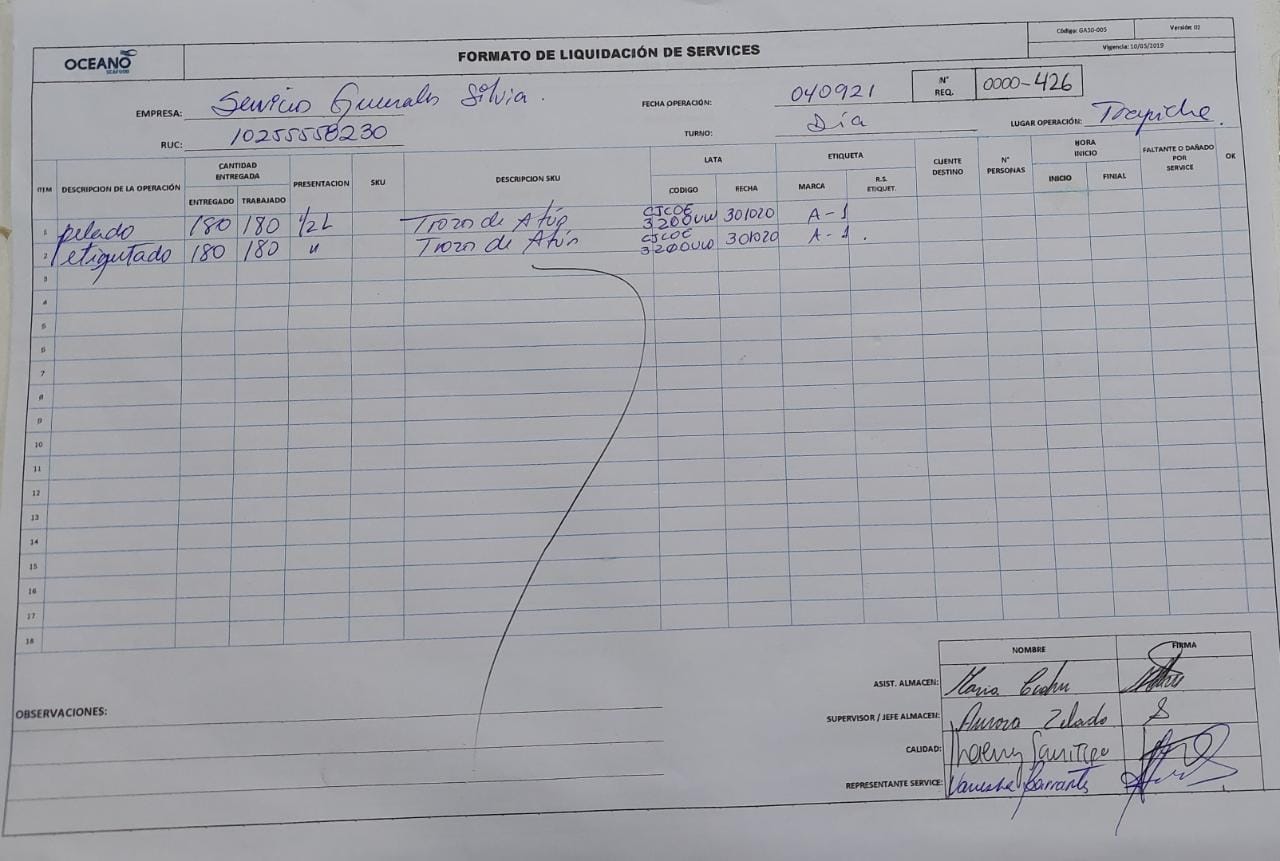 OCEANO
SEAFOOD
FORMATO DE LIQUIDACIÓN DE SERVICES
Código: GA10-005
Versión: 02
Vigencia: 10/05/2019
EMPRESA: Servicios Generales Silvia.
FECHA OPERACIÓN: 040921
N° REQ. 0000-426
RUC: 10255558230
TURNO: Día
LUGAR OPERACIÓN: Trapiche.
ITEM DESCRIPCION DE LA OPERACIÓN CANTIDAD ENTREGADA ENTREGADO TRABAJADO PRESENTACION SKU DESCRIPCION SKU LATA CODIGO FECHA ETIQUETA MARCA R.S. ETIQUET. CLIENTE DESTINO N° PERSONAS HORA INICIO INICIO FINIAL FALTANTE O DAÑADO POR SERVICE OK
1 pelado 180 180 1/2L Trozo de Atún CJCOE 3200UW 301020 A-1
2 etiquetado 180 180 " Trozo de Atún CJCOE 3200UW 301020 A-1.
3
4
5
6
7
8
9
10
11
12
13
14
15
16
17
18
NOMBRE FIRMA
ASIST. ALMACEN: Maria
SUPERVISOR / JEFE ALMACEN: Aurora Zelado
CALIDAD:
REPRESENTANTE SERVICE: Vanessa Barrantes
OBSERVACIONES: